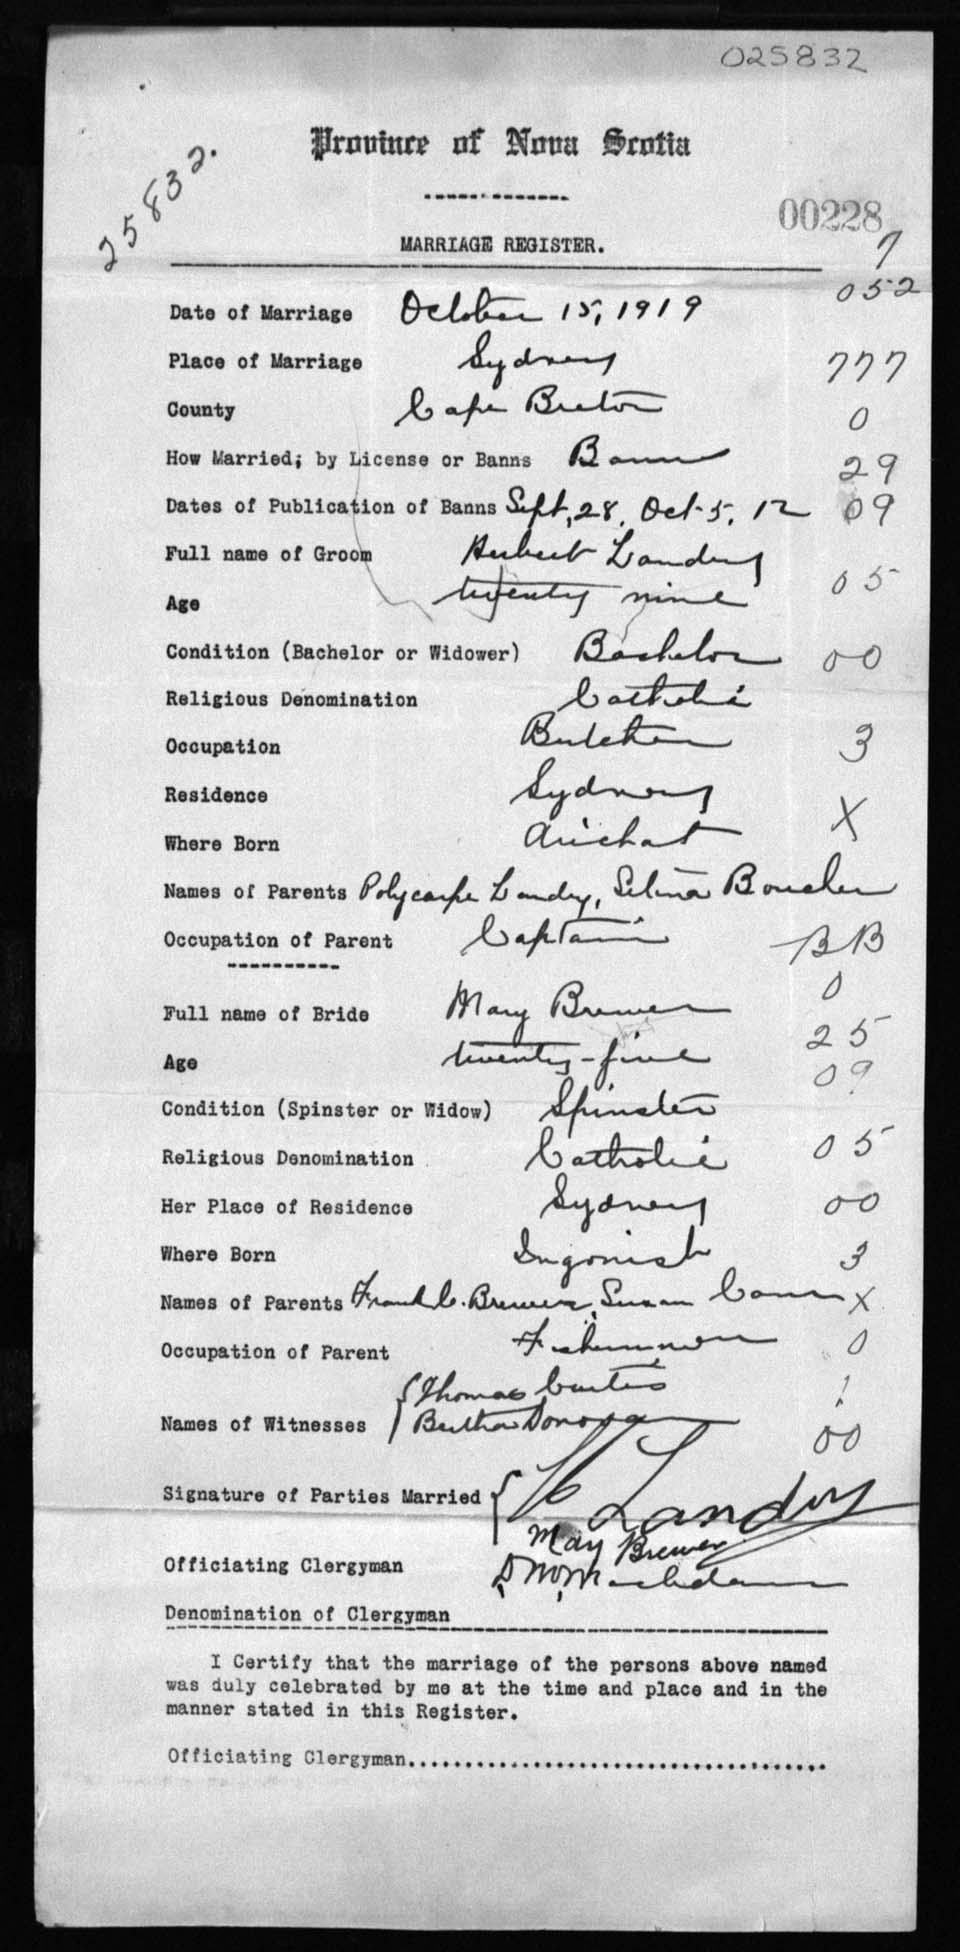 025832
25832.
Province of Nova Scotia
00228
7
MARRIAGE REGISTER.
052
Date of Marriage October 15, 1919
Place of Marriage Sydney 777
County Cape Breton 0
How Married; by License or Banns Banns 29
Dates of Publication of Banns Sept, 28, Oct 5, 12 09
Full name of Groom Herbert Landry
Age twenty nine 05
Condition (Bachelor or Widower) Bachelor 00
Religious Denomination Catholic
Occupation Butcher 3
Residence Sydney
Where Born Arichat X
Names of Parents Polycarpe Landry, Selina Boucher
Occupation of Parent Captain BB
0
Full name of Bride Mary Brewer
Age twenty-five 25
09
Condition (Spinster or Widow) Spinster
Religious Denomination Catholic 05
Her Place of Residence Sydney 00
Where Born Ingonish 3
Names of Parents Frank C. Brewer, Susan X
Occupation of Parent Fisherman 0
Thomas Curtis 1
Names of Witnesses Bertha Donovan 00
Signature of Parties Married H Landry
May Brewer
Officiating Clergyman
Denomination of Clergyman
I Certify that the marriage of the persons above named
was duly celebrated by me at the time and place and in the
manner stated in this Register.
Officiating Clergyman.....................................